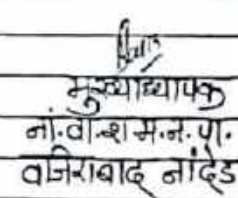 मुख्याध्यापक
नां.वा.श म.न.पा.
वजिराबाद नांदेड